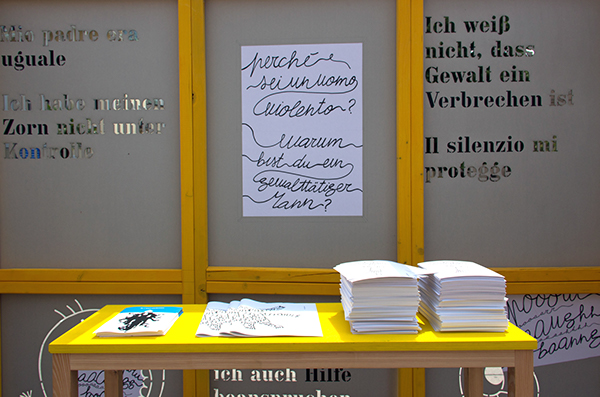 Mio padre era
uguale
Ich habe meinen
Zorn nicht unter
Kontrolle
perché
sei un uomo
violento?
warum
bist du ein
gewalttätiger
Mann?
Ich weiß
nicht, dass
Gewalt ein
Verbrechen ist
Il silenzio mi
protegge
ich auch Hilfe
beanspruchen